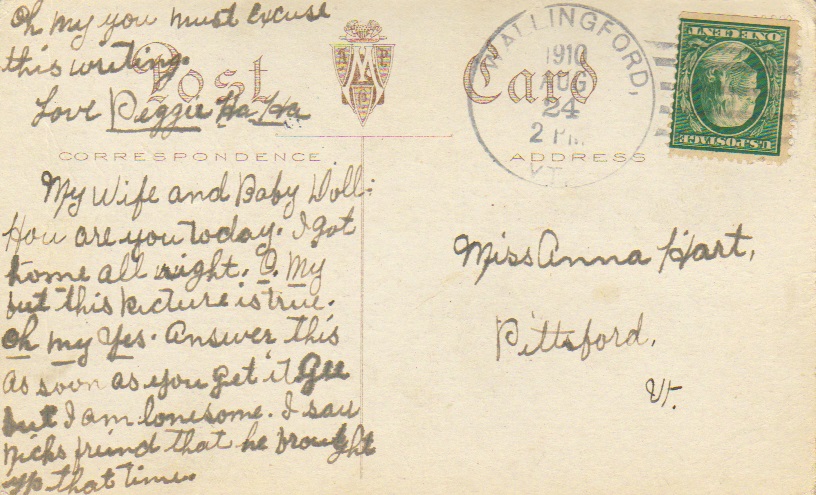 Oh my you must excuse
this writing.
Love Peggie Ha. Ha
Post Card
A M P
C
WALLINGFORD,
1910
AUG
24
2 PM
VT.
U.S. POSTAGE
ONE CENT
CORRESPONDENCE
ADDRESS
My Wife and Baby Doll:
How are you today. I got
home all right. O. My
but this picture is true.
Oh my Yes. Answer this
as soon as you get it. Gee
but I am lonesome. I saw
Nicks friend that he brought
up that time.
Miss Anna Hart,
Pittsford,
Vt.